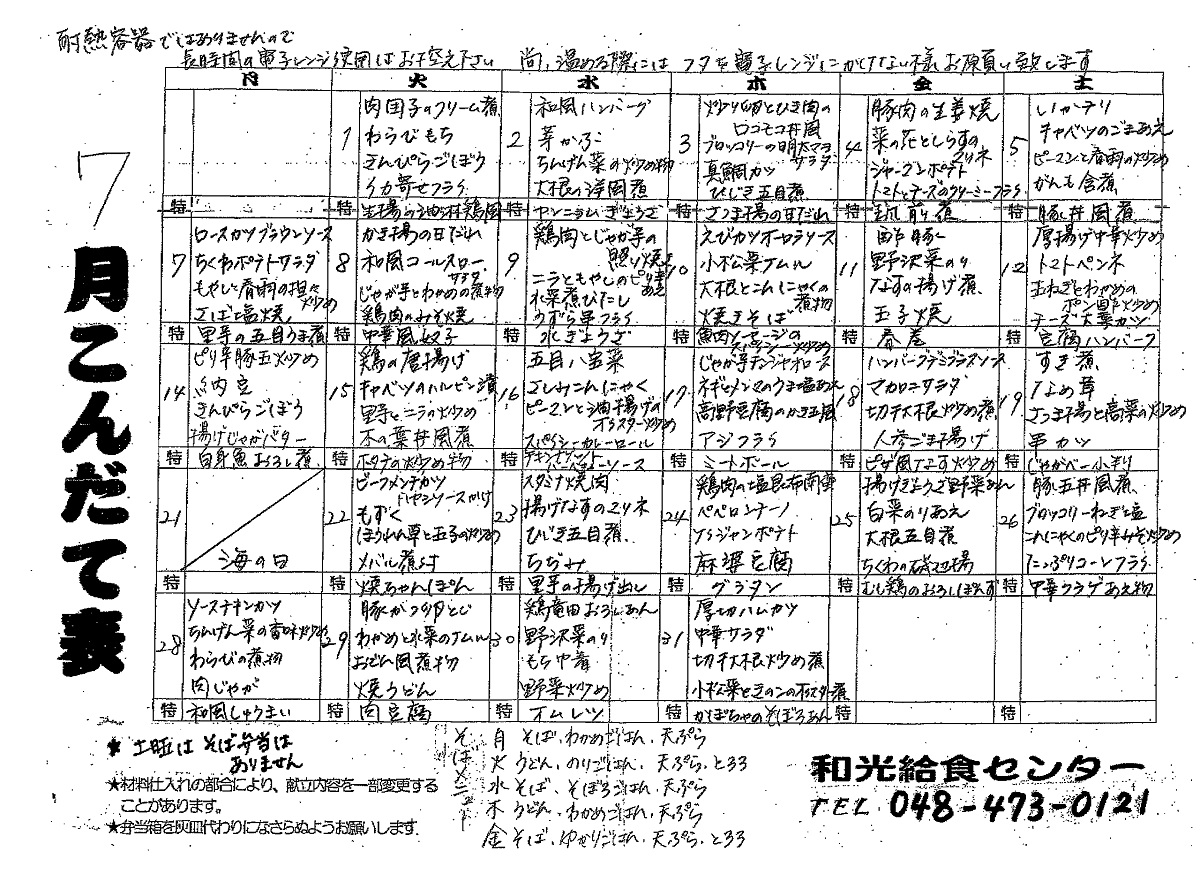 耐熱容器ではありませんので
長時間の電子レンジ使用はお控え下さい 尚、温める際には フタを電子レンジにかけない様お願い致します
7月こんだて表
月 火 水 木 金 土
1
肉団子のクリーム煮
わらびもち
きんぴらごぼう
イカ寄せフライ
2
和風ハンバーグ
芋かぶ
ちんげん菜の炒め物
大根の洋風煮
3
炒り卵とひき肉の
ロコモコ丼風
ブロッコリーの明太マヨ
サラダ
真鯛カツ
ひじき五目煮
4
豚肉の生姜焼
菜の花としらすの
マリネ
ジャーマンポテト
トマトとチーズのクリーミーフライ
5
いかチリ
キャベツのごまあえ
ピーマンと春雨の炒め
がんも含煮
特
特 生揚げ油淋鶏風
特 ヤンニョムぎょうざ
特 さつま揚の甘だれ
特 筑前煮
特 豚丼風煮
7
ロースカツブラウンソース
ちくわポテトサラダ
もやしと春雨の担々炒め
さば塩焼
8
かき揚の甘だれ
和風コールスロー
サラダ
じゃが芋とわかめの煮物
鶏肉のみそ焼
9
鶏肉とじゃが芋の
照り焼き
ニラともやしのピリ辛
あえ
水菜煮びたし
うずら串フライ
10
えびカツオーロラソース
小松菜ナムル
大根とこんにゃくの
煮物
焼きそば
11
酢豚
野沢菜のり
なすの揚げ煮
玉子焼
12
厚揚げ中華炒め
トマトペンネ
玉ねぎとわかめの
ポン酢炒め
チーズ大葉カツ
特 里芋の五目うま煮
特 中華風奴子
特 水ぎょうざ
特 魚肉ソーセージの
炒め
特 春巻
特 豆腐ハンバーグ
14
ピリ辛豚玉炒め
納豆
きんぴらごぼう
揚げじゃがバター
15
鶏の唐揚げ
キャベツのハルピン漬
里芋とニラの炒め
木の葉丼風煮
16
五目八宝菜
さしみこんにゃく
ピーマンと油揚げの
オイスター炒め
スパイシーカレーロール
17
じゃが芋チンジャオロース
ネギとメンマのうま塩あえ
高野豆腐のかき玉風
アジフライ
18
ハンバーグデミグラスソース
マカロニサラダ
切干大根炒め煮
人参ごま揚げ
19
すき煮
なめ茸
さつま揚と高菜の炒め
串カツ
特 白身魚おろし煮
特 ホタテの炒め物
特 チキンソテー
ソース
特 ミートボール
特 ピザ風なす炒め
特 じゃがべー小判
21
海の日
22
ビーフメンチカツ
トマトソースかけ
もずく
ほうれん草と玉子の炒め
メバル煮付
23
スタミナ焼肉
揚げなすのマリネ
ひじき五目煮
ちぢみ
24
鶏肉の塩昆布南蛮
ペペロンチーノ
アジアンポテト
麻婆豆腐
25
揚げぎょうざ野菜あん
白菜のりあえ
大根五目煮
ちくわの磯辺揚
26
豚玉丼風煮
ブロッコリーねぎ塩
こんにゃくのピリ辛みそ炒め
たっぷりコーンフライ
特
特 焼ちゃんぽん
特 里芋の揚げ出し
特 グラタン
特 むし鶏のおろしぽんず
特 中華クラゲあえ物
28
ソースチキンカツ
ちんげん菜の香味炒め
わらびの煮物
肉じゃが
29
豚がつ卵とじ
わかめと水菜のナムル
おでん風煮物
焼うどん
30
鶏竜田おろしあん
野沢菜のり
もち巾着
野菜炒め
31
厚切ハムカツ
中華サラダ
切干大根炒め煮
小松菜ときのこのオイスター煮
特 和風しゅうまい
特 肉豆腐
特 オムレツ
特 かぼちゃのそぼろあん
特
特
★土曜はそば弁当は
ありません
★材料仕入れの都合により、献立内容を一部変更する
ことがあります。
★弁当箱を灰皿代わりになさらぬようお願いします.
そばメニュー
月 そば、わかめごはん、天ぷら
火 うどん、のりごはん、天ぷら、とろろ
水 そば、そぼろごはん、天ぷら
木 うどん、わかめごはん、天ぷら
金 そば、ゆかりごはん、天ぷら、とろろ
和光給食センター
TEL 048-473-0121